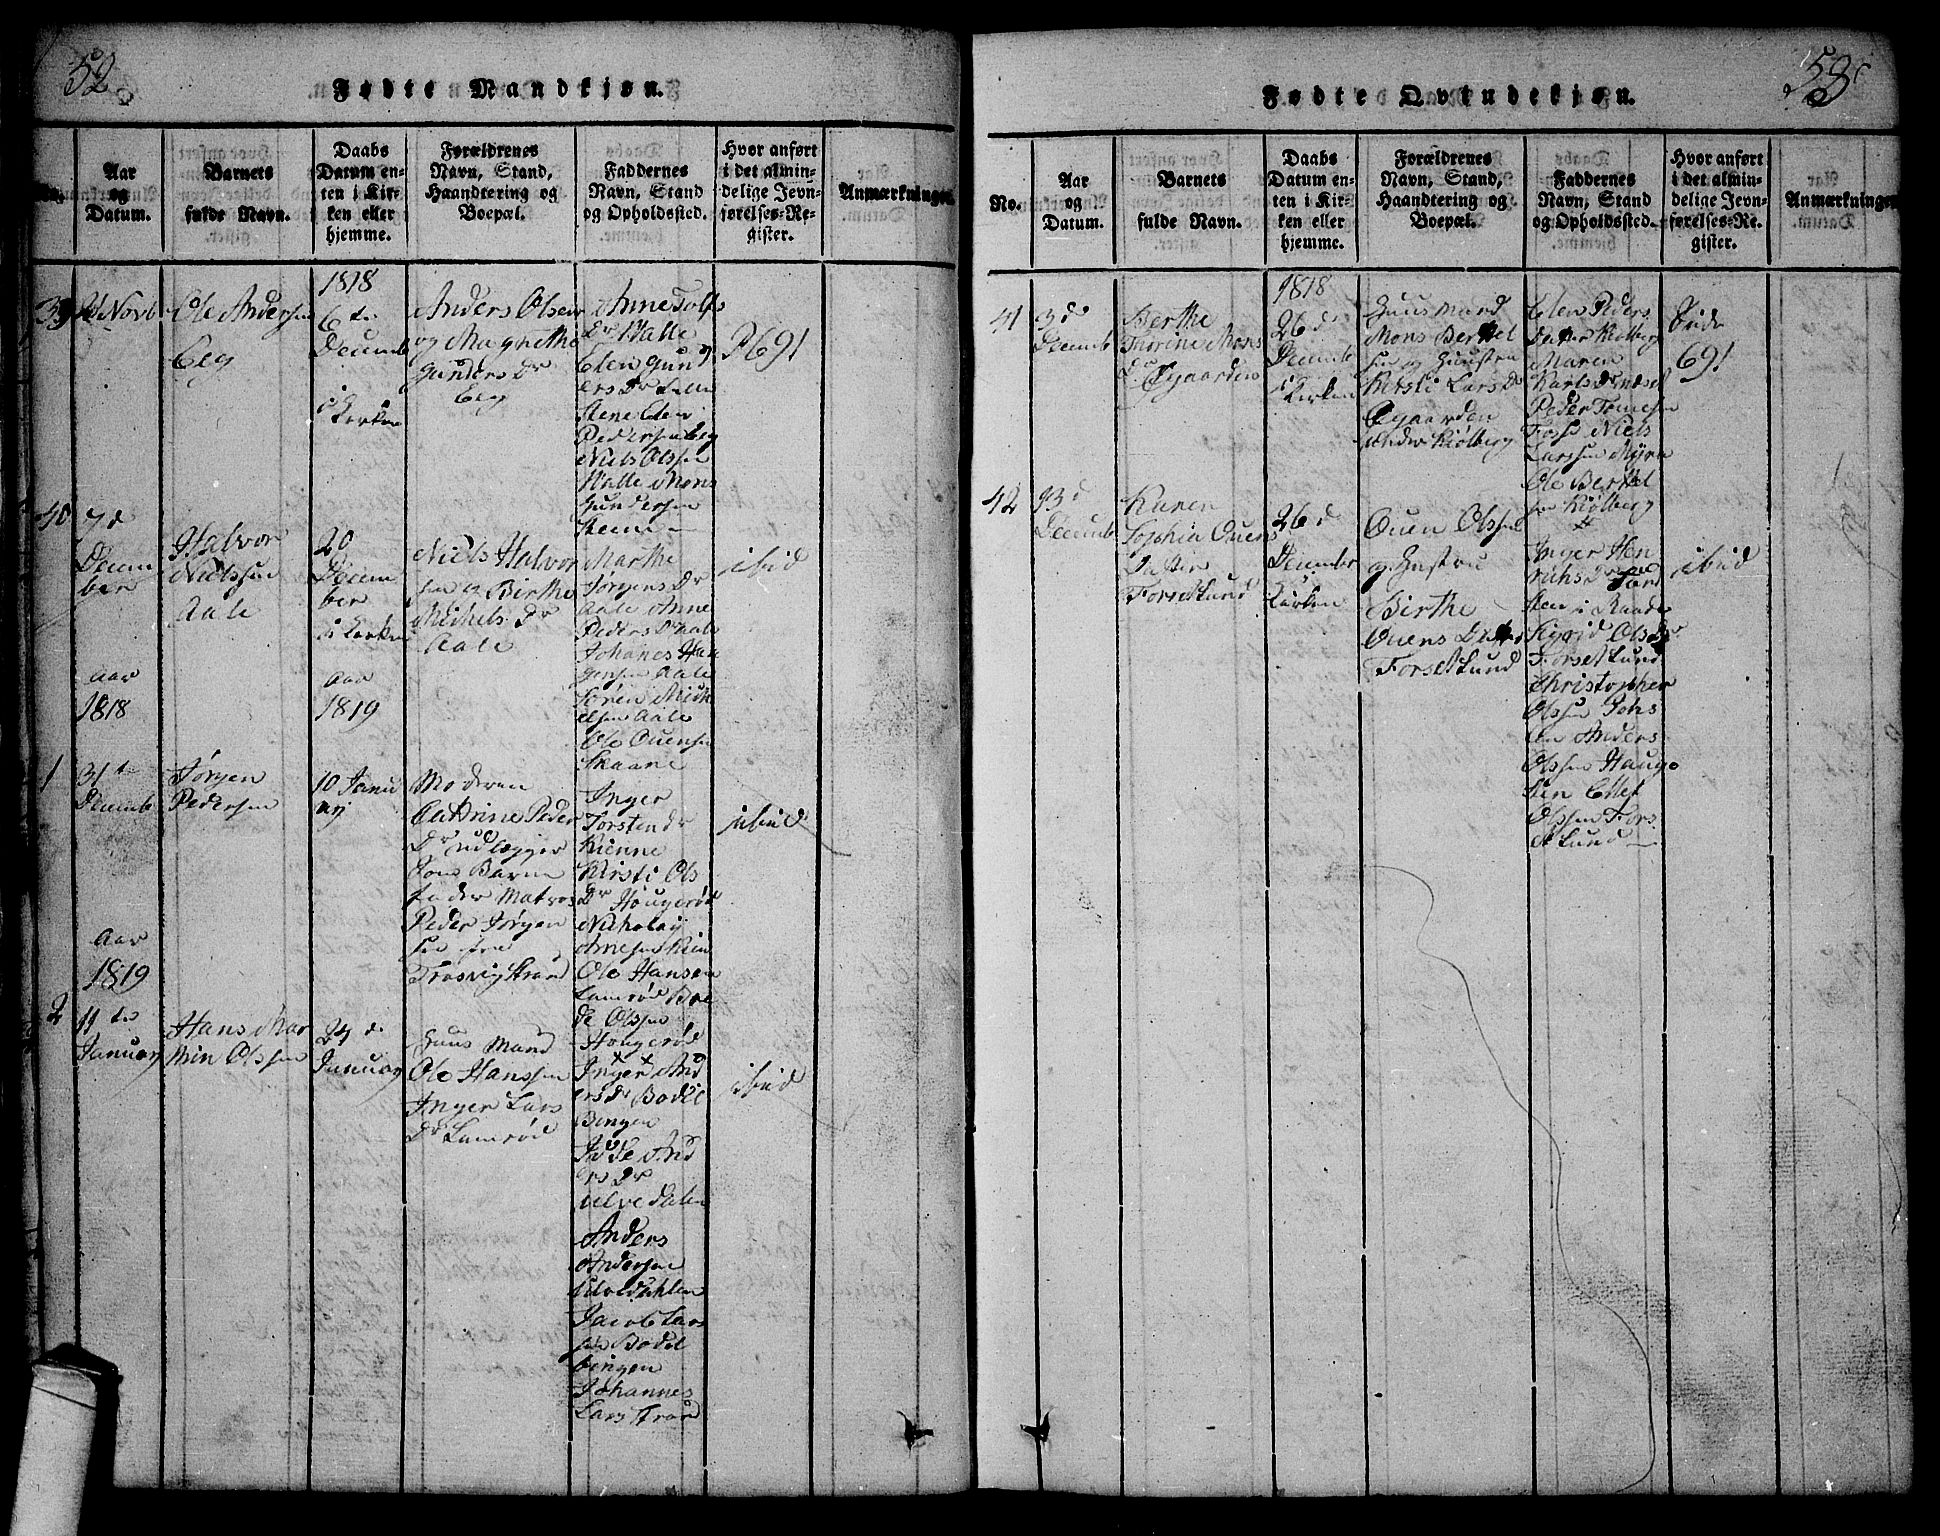 52
Fødte Mandkjøn.
No.
Aar
og
Datum.
Barnets
fulde Navn.
Daabs
Datum en-
ten i Kir-
ken eller
hjemme.
Forældrenes
Navn, Stand,
Haandtering og
Boepæl.
Faddernes
Navn, Stand
og Opholdssted.
Hvor anført
i det almin-
delige Jevn-
førelses-Re-
gister.
Anmærkninger
39
Novb
Ole Andersen
Eeg
1818
6te
Decemb
i Kirken
Anders Olsen
og Magnethe
Gunders Dr
Eeg
Anne Tolfs
Dr Halle
Elen Gund
ers Dr
Stene Elen
Pedersen Eeg
Niels Olssen
Halle Mons
Gundersen
Steene
3691
40
7d
Decem
ber
Halvor
Nielssen
Aale
20
Decem
ber
i Kirken
Niels Halvor
sen og Birthe
Michels Dr
Aale
Marthe
Jørgens Dr
Aale Anne
Peders Dr Aale
Johanes Han
gensen Aale
Søren Mick
elsen Aale
Ole Ouensen
Skaane
ibid
Aar
1818
Aar
1819
1
31te
Decemb
Jørgen
Pedersen
10 Janu
arj
Moderen
Cathrine Peder
Dr udlægger
som Barne
fader Matros
Peder Jørgen
sen
Trosvigstrand
Inger
Torsten Dr
Kienne
Kirsti Ols
Dr Hougerød
Nicholaÿ
Arnesen Kien
Ole Hansen
Lamrød Boe
de Olssen
Hougerød
ibid
Aar
1819
2
11te
Januarj
Hans Mar
thin Olssen
24 d
Januarj
Huus Mand
Ole Hanssen
Inger Lars
Dr Lamrød
Inger And
ers Dr Bodel
Bingen
And
rs Dr
ulvedalen
Anders
Andersen
Ulvedahlen
Jacob Lars
sen Bodel
bingen
Johannes
Lars Strand
ibid
53
Fødte Qvindekjøn.
No.
Aar
og
Datum.
Barnets
fulde Navn.
Daabs
Datum en-
ten i Kir-
ken eller
hjemme.
Forældrenes
Navn, Stand,
Haandtering og
Boepæl.
Faddernes
Navn, Stand
og Opholdssted.
Hvor anført
i det almin-
delige Jevn-
førelses-Re-
gister.
Anmærkninger
41
3d
Decemb
Berthe
Thorine Mons
Dr Øgaarden
1818
26 d
Decembr
i Kirken
Huus Mand
Mons Berthel
sen og Huustru
Kirsti Lars Dr
Øgaarden
under Kiølberg
Elen Peders
Dater Kiølberg
Maren
Karls Dr Næset
Peder Tomesen
Foss Niels
Larssen Myra
Ole Berthel
sen Kiølberg
Side
691
42
13 d
Decemb
Karen
Sophia Ouens
Dater
Forsetlund
26 d
Decembr
Kirken
Ouen Olssen
og Hustru
Birthe
Ouens Dater
Forsetlund
Inger Hen
richs Dr
sten i Raade
Sigrid Ols Dr
Forsetlund
Christopher
Olssen
Anders
Olssen Haug
sten Ellef
Olssen Fors
etlund
ibid